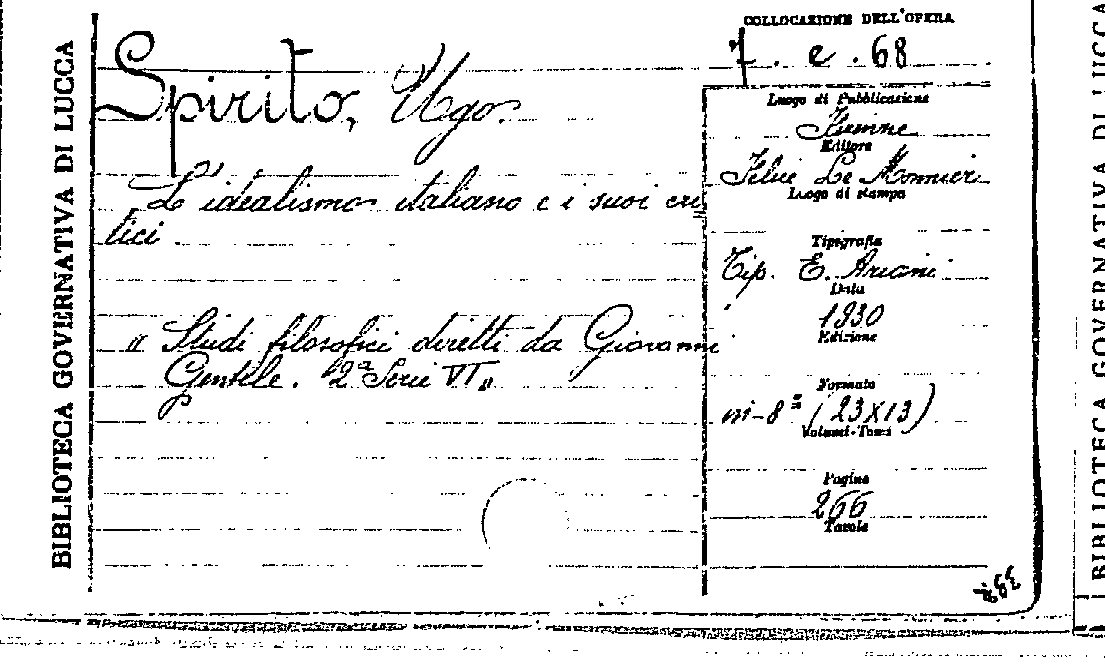 BIBLIOTECA GOVERNATIVA DI LUCCA
COLLOCAZIONE DELL'OPERA
7. e. 68
Spirito, Ugo.
L'idealismo italiano e i suoi cri
tici
" Studi filosofici diretti da Giovanni
Gentile. 2ª Serie VI "
Luogo di Pubblicazione
Firenze
Editore
Felice Le Monnier
Luogo di stampa
Tipografia
Tip. E. Ariani
Data
1930
Edizione
Formato
in-8º (23X13)
Volumi-Tomi
Pagine
266
Tavole
BIBLIOTECA GOVERNATIVA DI LUCCA